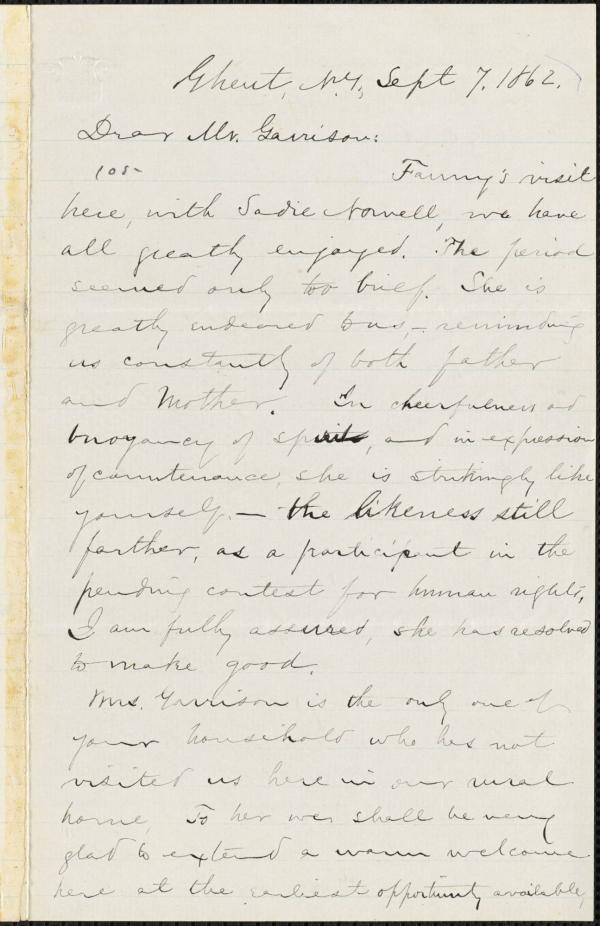 Ghent, N.Y., Sept 7. 1862.
Dear Mr. Garrison:
105
Fanny's visit
here, with Sadie Nowell, we have
all greatly enjoyed. The period
seemed only too brief. She is
greatly endeared to us, – reminding
us constantly of both father
and Mother. In cheerfulness and
buoyancy of spirits, and in expression
of countenance, she is strikingly like
yourself, – the likeness still
farther, as a participant in the
pending contest for human rights,
I am fully assured, she has resolved
to make good.
Mrs. Garrison is the only one of
your household who has not
visited us here in our rural
home. To her we shall be very
glad to extend a warm welcome
here at the earliest opportunity available,